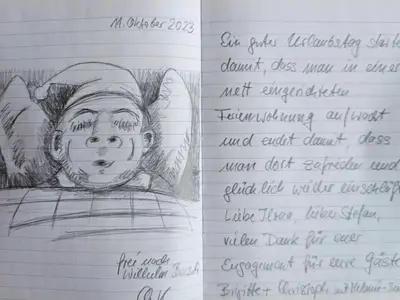 11. Oktober 2023
frei nach
Wilhelm Busch
Ein guter Urlaubstag startet
damit, dass man in einer
nett eingerichteten
Ferienwohnung aufwacht
und endet damit, dass
man dort zufrieden und
glücklich wieder einschläft
Liebe lieber Stefan,
vielen Dank für euer
Engagement für eure Gäste
Brigitte + Christoph mit